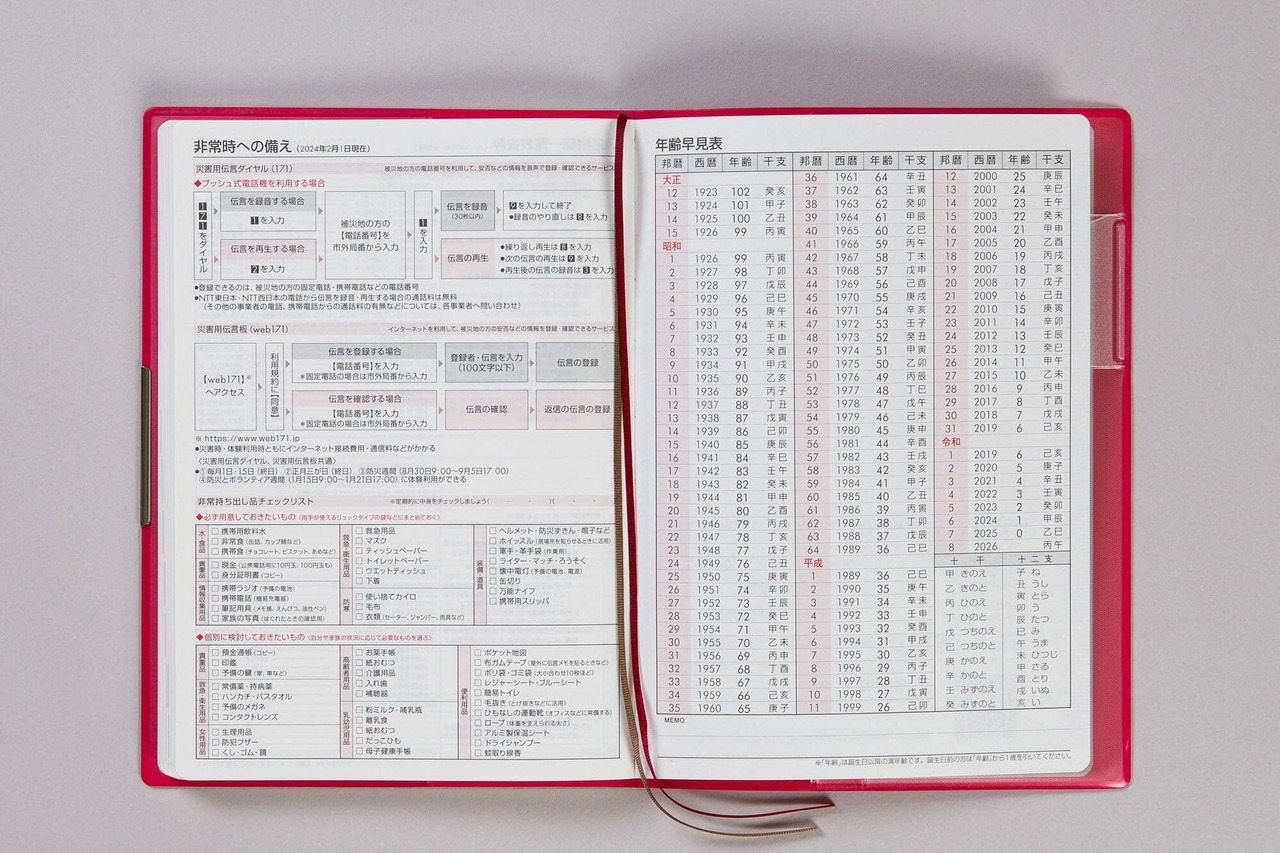 非常時への備え(2024年2月1日現在)
災害用伝言ダイヤル(171) 被災地の方の電話番号を利用して、安否などの情報を音声で登録・確認できるサービス
◆プッシュ式電話機を利用する場合
171をダイヤル
伝言を録音する場合
1を入力
伝言を再生する場合
2を入力
被災地の方の
【電話番号】を
市外局番から入力
1を入力
伝言を録音
(30秒以内)
9を入力して終了
●録音のやり直しは8を入力
伝言の再生
●繰り返し再生は8を入力
●次の伝言の再生は9を入力
●再生後の伝言の録音は3を入力
●登録できるのは、被災地の方の固定電話・携帯電話などの電話番号
●NTT東日本・NTT西日本の電話から伝言を録音・再生する場合の通話料は無料
(その他の事業者の電話、携帯電話からの通話料の有無などについては、各事業者へ問い合わせ)
災害用伝言板(web171) インターネットを利用して、被災地の方の安否などの情報を登録・確認できるサービス
【web171】※
へアクセス
利用規約に【同意】
伝言を登録する場合
【電話番号】を入力
*固定電話の場合は市外局番から入力
登録者・伝言を入力
(100文字以下)
伝言の登録
伝言を確認する場合
【電話番号】を入力
*固定電話の場合は市外局番から入力
伝言の確認
返信の伝言の登録
※ https://www.web171.jp
●災害時・体験利用時ともにインターネット接続費用・通信料などがかかる
〈災害用伝言ダイヤル、災害用伝言板共通〉
●①毎月1日・15日(終日) ②正月三が日(終日) ③防災週間(8月30日9:00〜9月5日17:00)
④防災とボランティア週間(1月15日9:00〜1月21日17:00)に体験利用ができる
非常持ち出し品チェックリスト ※定期的に中身をチェックしましょう( ・ ・ )( ・ ・
◆必ず用意しておきたいもの(両手が使えるリュックタイプの袋などにまとめておく)
水・食品
□携帯用飲料水
□非常食(缶詰、カップ麺など)
□携帯食(チョコレート、ビスケット、あめなど)
貴重品
□現金(公衆電話用に10円玉、100円玉も)
□身分証明書(コピー)
情報収集用品
□携帯ラジオ(予備の電池)
□携帯電話(簡易充電器)
□筆記用具(メモ帳、えんぴつ、油性ペン)
□家族の写真(はぐれたときの確認用)
救急・衛生用品
□救急用品
□マスク
□ティッシュペーパー
□トイレットペーパー
□ウエットティッシュ
□下着
防寒
□使い捨てカイロ
□毛布
□衣類(セーター、ジャンパー、雨具など)
装備・道具
□ヘルメット・防災ずきん・帽子など
□ホイッスル(居場所を知らせるときに活用)
□軍手・革手袋(作業用)
□ライター・マッチ・ろうそく
□懐中電灯(予備の電池、電源)
□缶切り
□万能ナイフ
□携帯用スリッパ
◆個別に検討しておきたいもの(自分や家族の状況に応じて必要なものを選ぶ)
貴重品
□預金通帳(コピー)
□印鑑
□予備の鍵(家、車など)
救急・衛生用品
□常備薬・持病薬
□ハンカチ・バスタオル
□予備のメガネ
□コンタクトレンズ
女性用品
□生理用品
□防犯ブザー
□くし・ゴム・鏡
高齢者用品
□お薬手帳
□紙おむつ
□介護用品
□入れ歯
□補聴器
乳幼児用品
□粉ミルク・哺乳瓶
□離乳食
□紙おむつ
□だっこひも
□母子健康手帳
便利用品
□ポケット地図
□布ガムテープ(屋外に伝言メモを貼るときなど)
□ポリ袋・ゴミ袋(大小合わせ10枚ほど)
□レジャーシート・ブルーシート
□簡易トイレ
□毛抜き(とげ抜きなどに活用)
□ひもなしの運動靴(オフィスなどに常備する)
□ロープ(体重を支えられる太さ)
□アルミ製保温シート
□ドライシャンプー
□蚊取り線香
年齢早見表
邦暦 西暦 年齢 干支
大正
12 1923 102 癸亥
13 1924 101 甲子
14 1925 100 乙丑
15 1926 99 丙寅
昭和
1 1926 99 丙寅
2 1927 98 丁卯
3 1928 97 戊辰
4 1929 96 己巳
5 1930 95 庚午
6 1931 94 辛未
7 1932 93 壬申
8 1933 92 癸酉
9 1934 91 甲戌
10 1935 90 乙亥
11 1936 89 丙子
12 1937 88 丁丑
13 1938 87 戊寅
14 1939 86 己卯
15 1940 85 庚辰
16 1941 84 辛巳
17 1942 83 壬午
18 1943 82 癸未
19 1944 81 甲申
20 1945 80 乙酉
21 1946 79 丙戌
22 1947 78 丁亥
23 1948 77 戊子
24 1949 76 己丑
25 1950 75 庚寅
26 1951 74 辛卯
27 1952 73 壬辰
28 1953 72 癸巳
29 1954 71 甲午
30 1955 70 乙未
31 1956 69 丙申
32 1957 68 丁酉
33 1958 67 戊戌
34 1959 66 己亥
35 1960 65 庚子
邦暦 西暦 年齢 干支
36 1961 64 辛丑
37 1962 63 壬寅
38 1963 62 癸卯
39 1964 61 甲辰
40 1965 60 乙巳
41 1966 59 丙午
42 1967 58 丁未
43 1968 57 戊申
44 1969 56 己酉
45 1970 55 庚戌
46 1971 54 辛亥
47 1972 53 壬子
48 1973 52 癸丑
49 1974 51 甲寅
50 1975 50 乙卯
51 1976 49 丙辰
52 1977 48 丁巳
53 1978 47 戊午
54 1979 46 己未
55 1980 45 庚申
56 1981 44 辛酉
57 1982 43 壬戌
58 1983 42 癸亥
59 1984 41 甲子
60 1985 40 乙丑
61 1986 39 丙寅
62 1987 38 丁卯
63 1988 37 戊辰
64 1989 36 己巳
平成
1 1989 36 己巳
2 1990 35 庚午
3 1991 34 辛未
4 1992 33 壬申
5 1993 32 癸酉
6 1994 31 甲戌
7 1995 30 乙亥
8 1996 29 丙子
9 1997 28 丁丑
10 1998 27 戊寅
11 1999 26 己卯
邦暦 西暦 年齢 干支
12 2000 25 庚辰
13 2001 24 辛巳
14 2002 23 壬午
15 2003 22 癸未
16 2004 21 甲申
17 2005 20 乙酉
18 2006 19 丙戌
19 2007 18 丁亥
20 2008 17 戊子
21 2009 16 己丑
22 2010 15 庚寅
23 2011 14 辛卯
24 2012 13 壬辰
25 2013 12 癸巳
26 2014 11 甲午
27 2015 10 乙未
28 2016 9 丙申
29 2017 8 丁酉
30 2018 7 戊戌
31 2019 6 己亥
令和
1 2019 6 己亥
2 2020 5 庚子
3 2021 4 辛丑
4 2022 3 壬寅
5 2023 2 癸卯
6 2024 1 甲辰
7 2025 0 乙巳
8 2026 丙午
十干
甲 きのえ
乙 きのと
丙 ひのえ
丁 ひのと
戊 つちのえ
己 つちのと
庚 かのえ
辛 かのと
壬 みずのえ
癸 みずのと
十二支
子 ね
丑 うし
寅 とら
卯 う
辰 たつ
巳 み
午 うま
未 ひつじ
申 さる
酉 とり
戌 いぬ
亥 い
MEMO
※「年齢」は誕生日以降の満年齢です。誕生日前の方は「年齢」から1歳を引いてください。